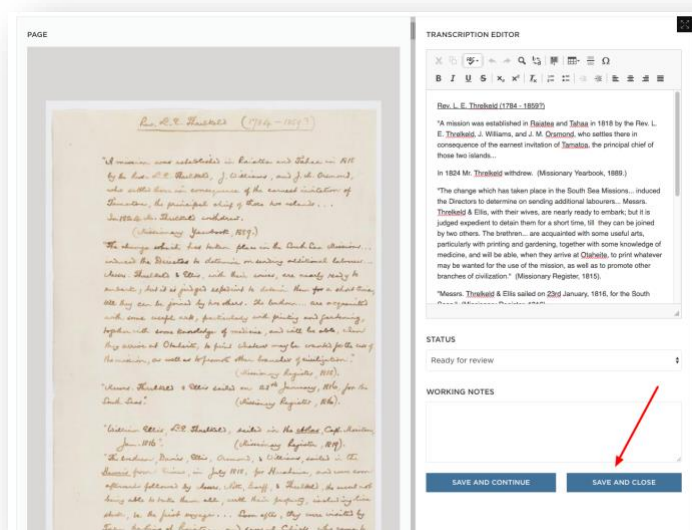 PAGE
Rev. L. E. Threlkeld (1784 - 1859?)
"A mission was established in Raiatea and Tahaa in 1818
by the Rev. L. E. Threlkeld, J. Williams, and J. M. Orsmond,
who settled here in consequence of the earnest invitation of
Tamatoa, the principal chief of those two islands...
In 1824 Mr. Threlkeld withdrew.
(Missionary Yearbook, 1889.)
"The change which has taken place in the South Sea Missions...
induced the Directors to determine on sending additional labourers...
Messrs. Threlkeld & Ellis, with their wives, are nearly ready to
embark; but it is judged expedient to detain them for a short time,
till they can be joined by two others. The brethren... are acquainted
with some useful arts, particularly with printing and gardening,
together with some knowledge of medicine, and will be able, when
they arrive at Otaheite, to print whatever may be wanted for the use of
the mission, as well as to promote other branches of civilization."
(Missionary Register, 1815).
"Messrs. Threlkeld & Ellis sailed on 23rd January, 1816, for the
South Seas."
(Missionary Register, 1816).
"William Ellis, L. E. Threlkeld, sailed in the Atlas, Capt.
Jan. 1816".
(Missionary Register, 1819).
"The brethren, Ellis, Ormond, & Williams, sailed in the
from Eimeo, in July 1818, for Huaheine, and were soon
afterwards followed by & Threlkeld, the vessel not
being able to take them all, with their property, including live
stock, in the first voyage... Soon after, they were visited by
and several Chiefs, who came to
TRANSCRIPTION EDITOR
B I U S x₂ x² Tx
Rev. L. E. Threlkeld (1784 - 1859?)
"A mission was established in Raiatea and Tahaa in 1818 by the Rev. L.
E. Threlkeld, J. Williams, and J. M. Orsmond, who settles there in
consequence of the earnest invitation of Tamatoa, the principal chief of
those two islands...
In 1824 Mr. Threlkeld withdrew. (Missionary Yearbook, 1889.)
"The change which has taken place in the South Sea Missions... induced
the Directors to determine on sending additional labourers... Messrs.
Threlkeld & Ellis, with their wives, are nearly ready to embark; but it is
judged expedient to detain them for a short time, till they can be joined
by two others. The brethren... are acquainted with some useful arts,
particularly with printing and gardening, together with some knowledge of
medicine, and will be able, when they arrive at Otaheite, to print whatever
may be wanted for the use of the mission, as well as to promote other
branches of civilization." (Missionary Register, 1815).
"Messrs. Threlkeld & Ellis sailed on 23rd January, 1816, for the South
STATUS
Ready for review
WORKING NOTES
SAVE AND CONTINUE
SAVE AND CLOSE